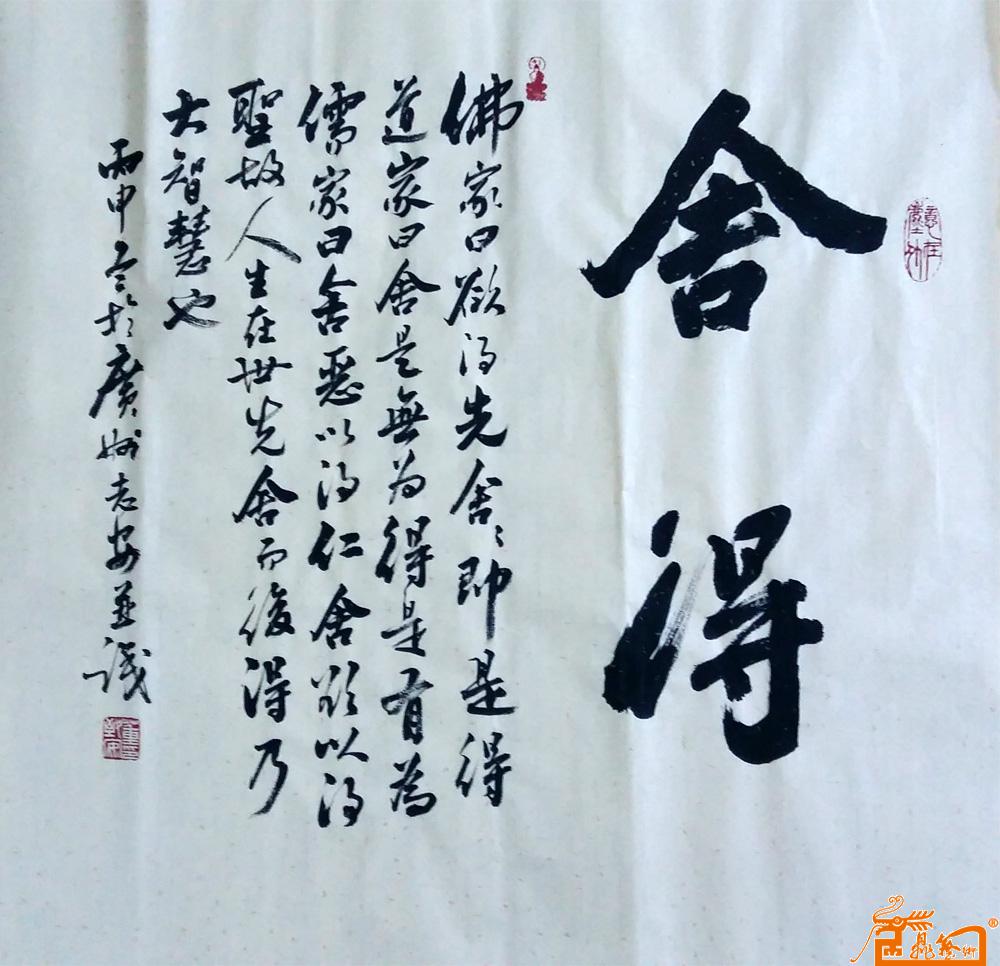 舍得
佛家曰欲得先舍舍即是得
道家曰舍是無为得是有為
儒家曰舍惡以得仁舍欲以得
聖故人生在世先舍而後得乃
大智慧也
丙申冬於廣州志安並識